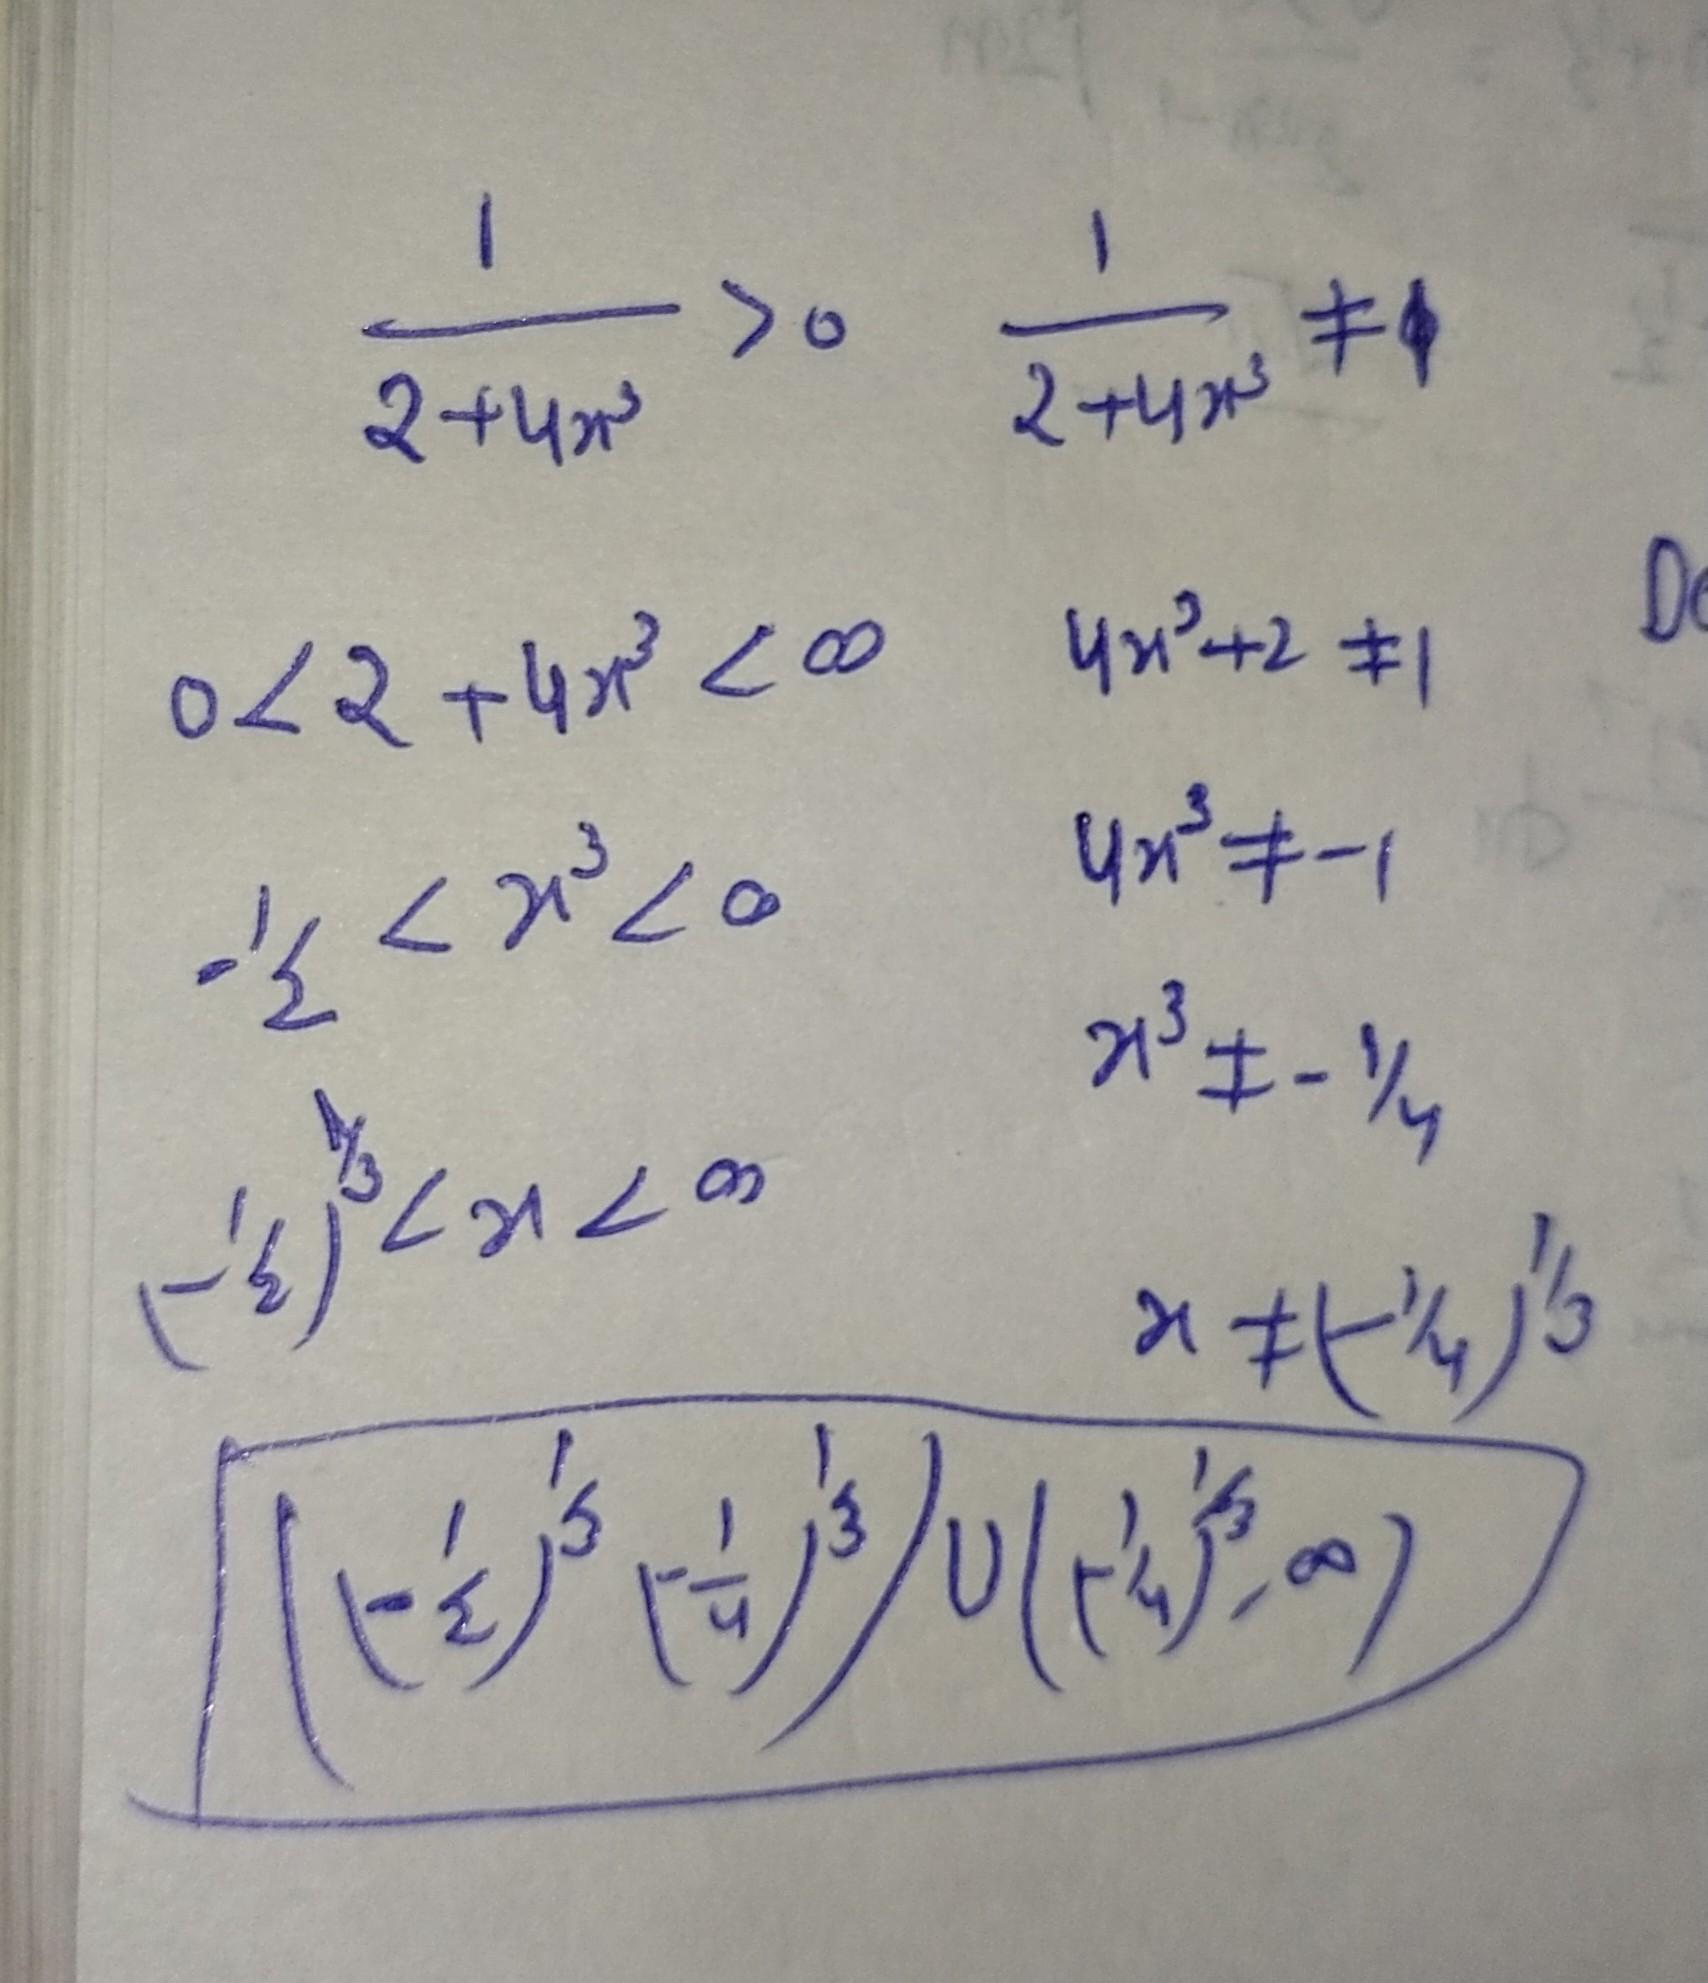 1/(2+4x³) > 0   1/(2+4x³) ≠ 1
0 < 2 + 4x³ < ∞   4x³+2 ≠ 1
-1/2 < x³ < ∞   4x³ ≠ -1
x³ ≠ -1/4
(-1/2)^1/3 < x < ∞
x ≠ (-1/4)^1/3
((-1/2)^1/3 (-1/4)^1/3) U ((-1/4)^1/3, ∞)